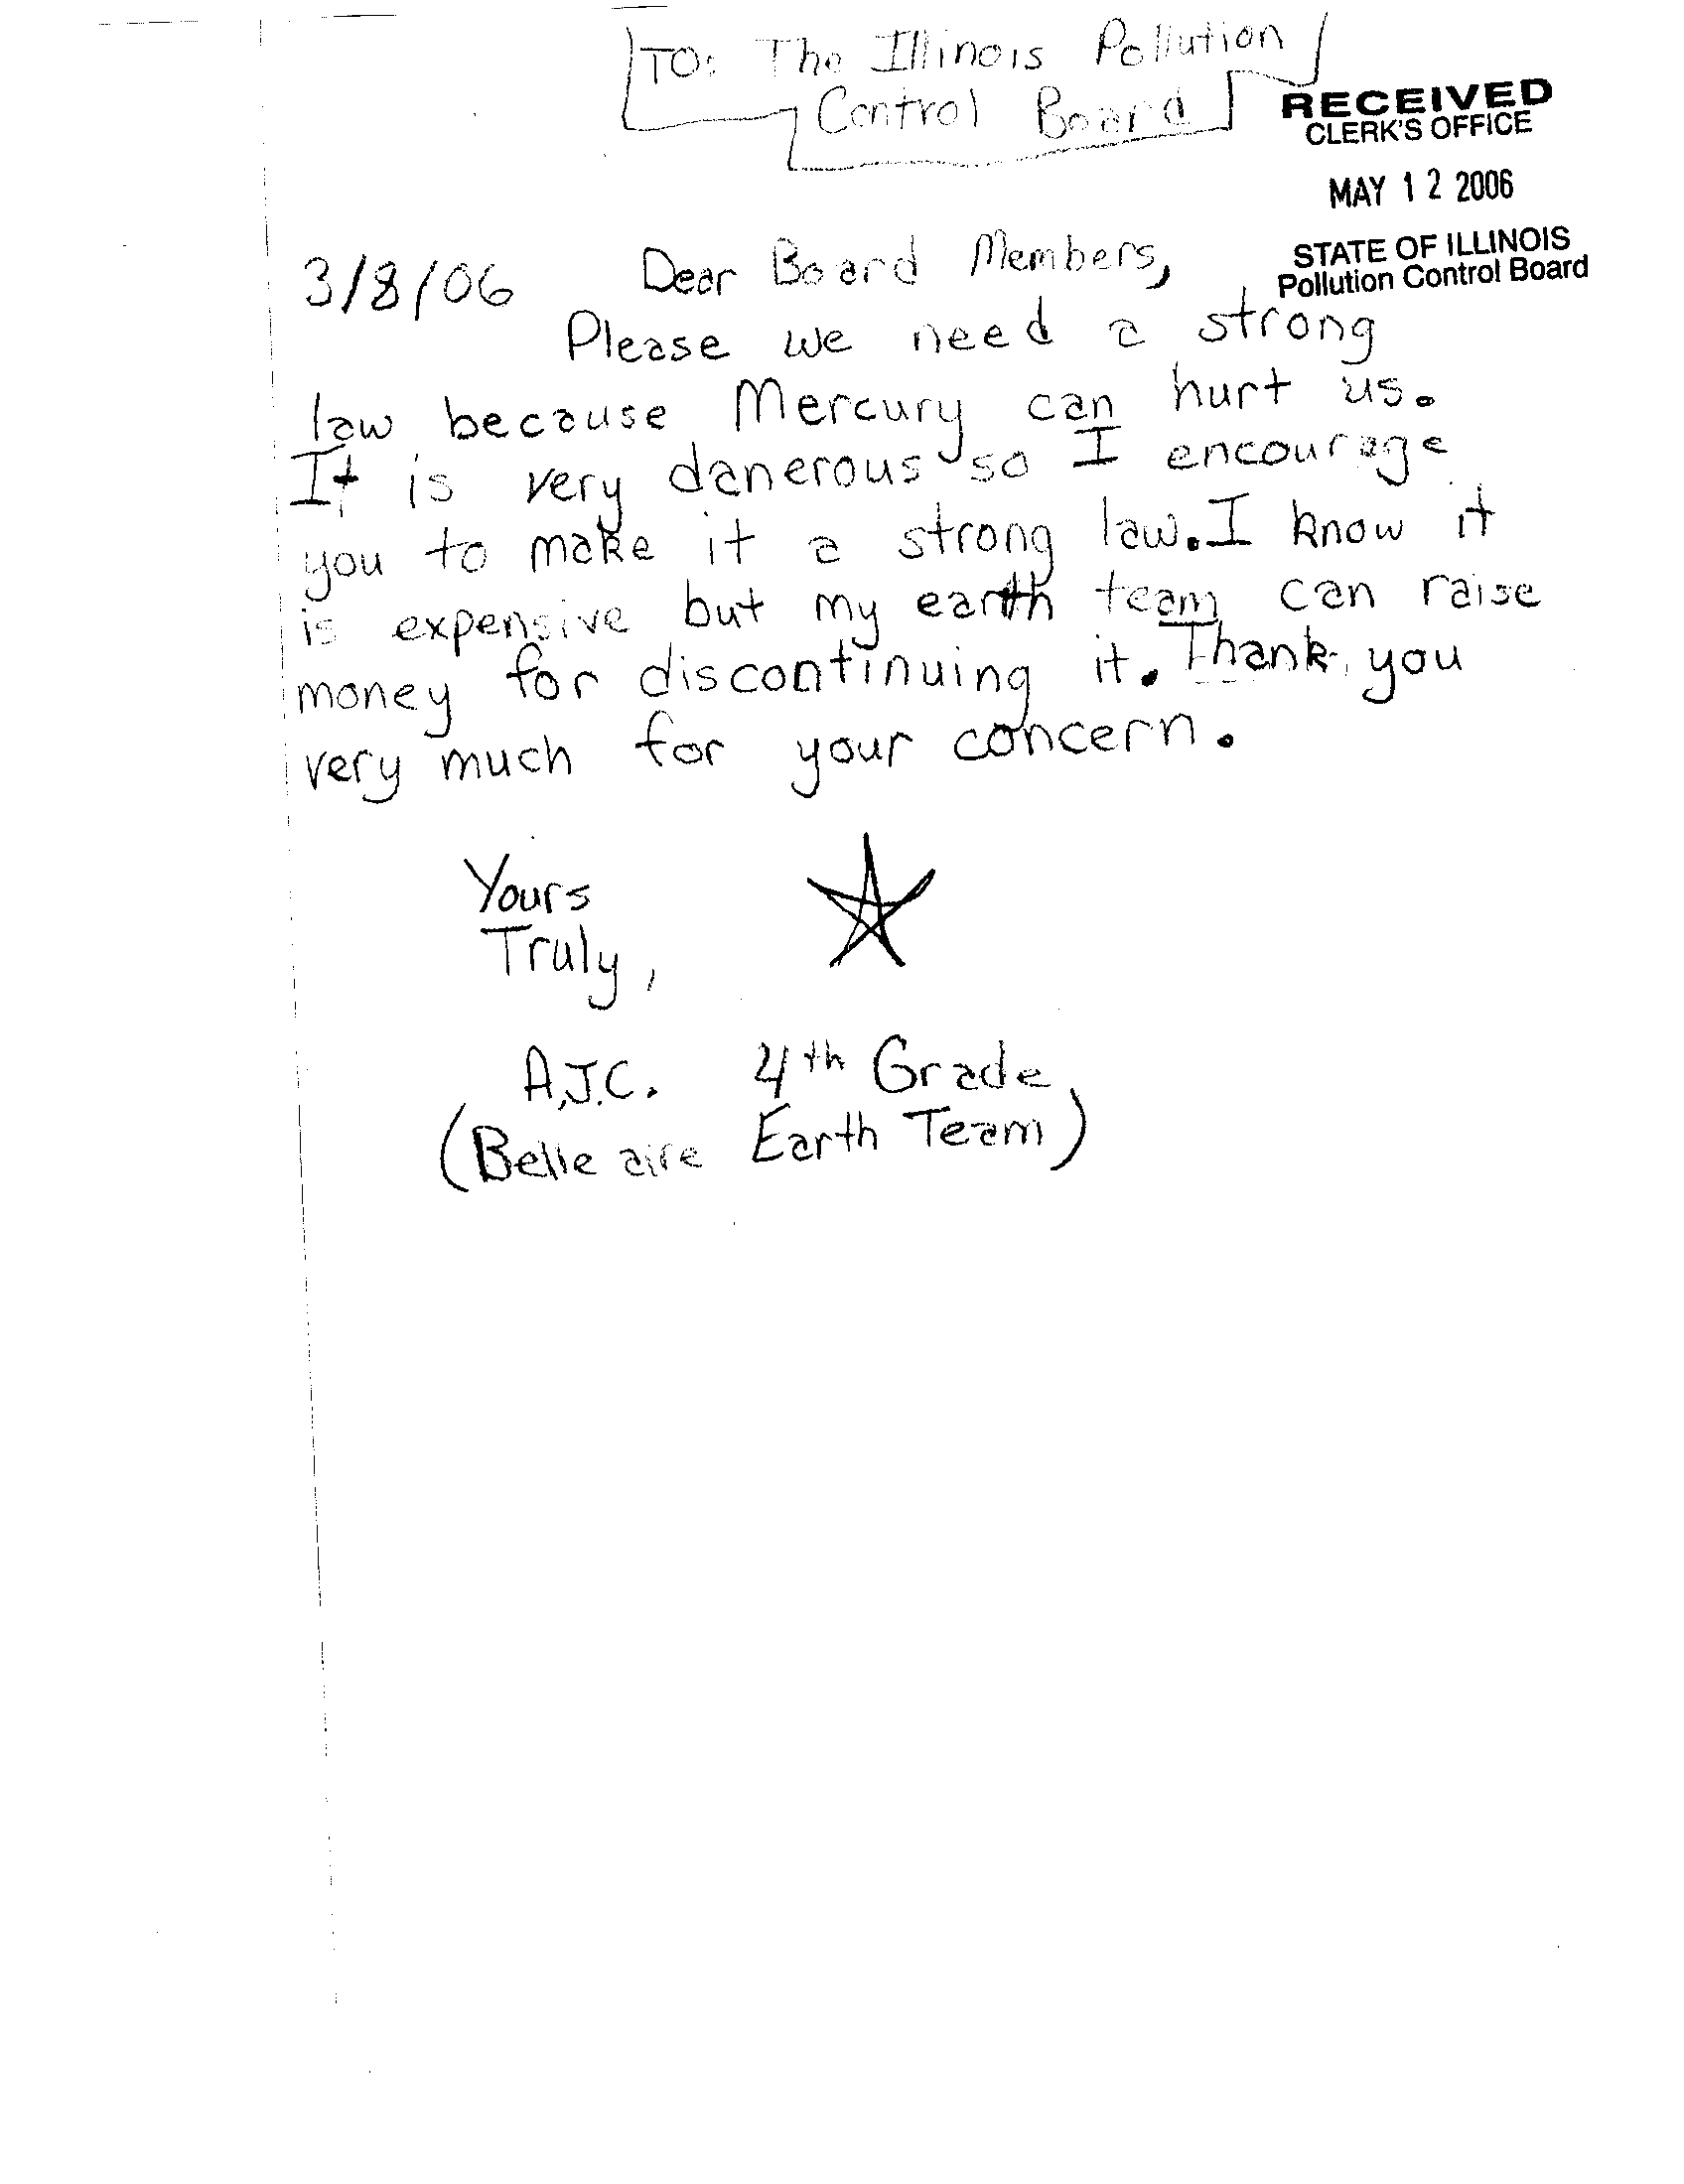 TO: The Illinois Pollution
Control Board
RECEIVED
CLERK'S OFFICE
MAY 12 2006
STATE OF ILLINOIS
Pollution Control Board
3/8/06 Dear Board Members,
Please we need a strong
law because Mercury can hurt us.
It is very danerous so I encourage
you to make it a strong law. I know it
is expensive but my earth team can raise
money for discontinuing it. Thank you
very much for your concern.
Yours
Truly,
A.J.C. 4th Grade
(Belle aire Earth Team)